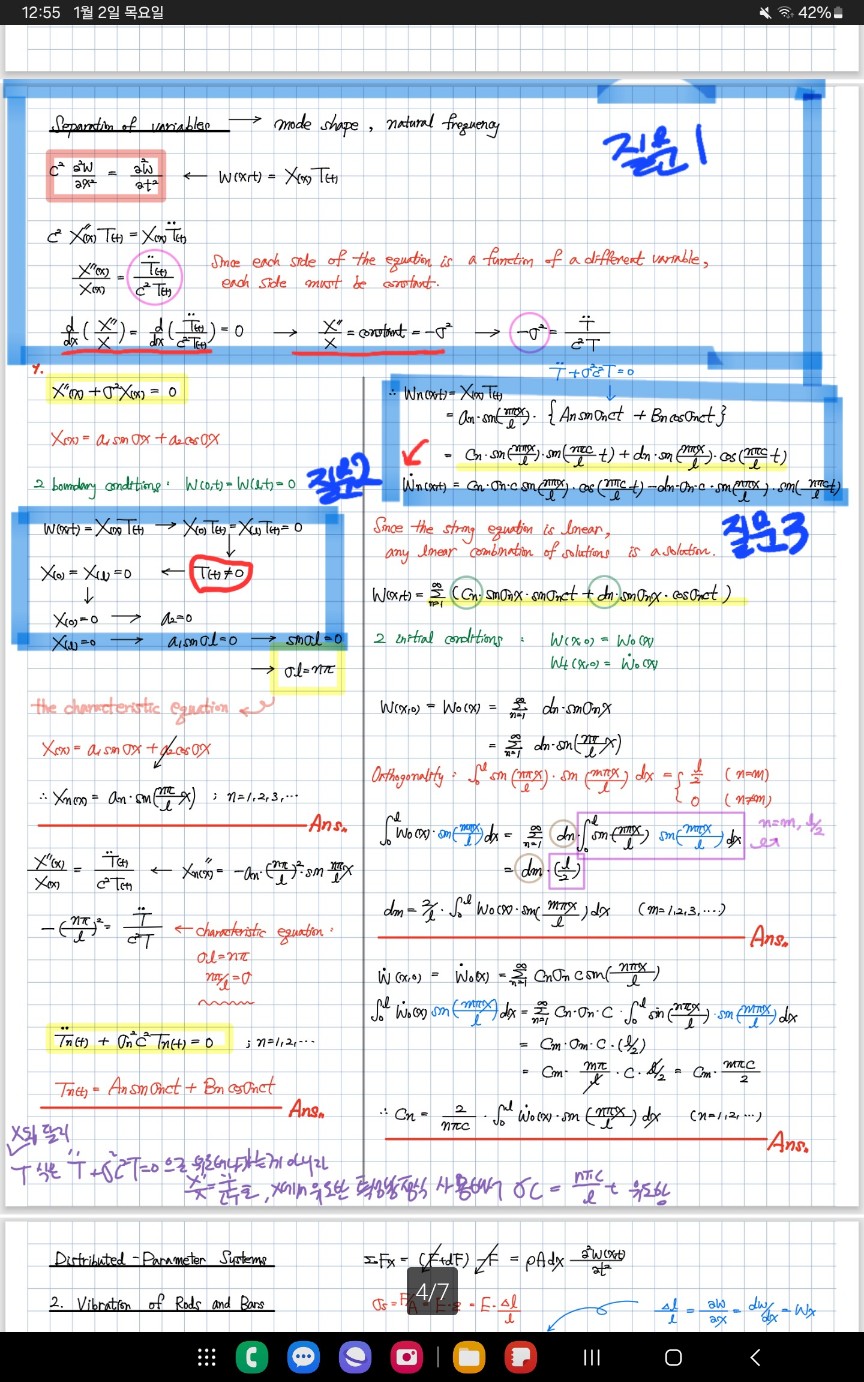 12:55 1월 2일 목요일 42%
Separation of variables → mode shape, natural frequency
질문1
c² ∂²w/∂x² = ∂²w/∂t² ← w(x,t) = X(x) T(t)
c² X''(x) T(t) = X(x) T̈(t)
X''(x)/X(x) = T̈(t)/c²T(t) Since each side of the equation is a function of a different variable,
each side must be constant.
d/dx (X''/X) = d/dx (T̈(t)/c²T(t)) = 0 → X''/X = constant = -σ² → -σ² = T̈/c²T
X''(x) + σ²X(x) = 0
X(x) = a₁ sin σx + a₂ cos σx
2 boundary conditions : W(0,t) = W(l,t) = 0
질문2
W(x,t) = X(x) T(t) → X(0) T(t) = X(l) T(t) = 0
X(0) = X(l) = 0 ← T(t) ≠ 0
↓
X(0) = 0 → a₂ = 0
X(l) = 0 → a₁ sin σl = 0 → sin σl = 0
→ σl = nπ
the characteristic equation
X(x) = a₁ sin σx + a₂ cos σx
∴ Xn(x) = an · sin(nπ/l x) ; n=1,2,3,⋯
Ans.
X''(x)/X(x) = T̈(t)/c²T(t) ← Xn''(x) = -an·(nπ/l)²·sin nπ/l x
-(nπ/l)² = T̈/c²T ← characteristic equation :
σl = nπ
nπ/l = σ
T̈n(t) + σn²c² Tn(t) = 0 ; n=1,2,⋯
Tn(t) = An sin σnct + Bn cos σnct
Ans.
X와 달리
T 식은 T̈ + σ²c²T = 0 으로
T̈ + σ²c²T = 0
∴ Wn(x,t) = X(x) T(t)
= an · sin(nπx/l) · {An sin σnct + Bn cos σnct}
= Cn · sin(nπx/l) · sin(nπc/l t) + dn · sin(nπx/l) · cos(nπc/l t)
Ẇn(x,t) = Cn·σn·c sin(nπx/l) · cos(nπc/l t) - dn·σn·c · sin(nπx/l) · sin(nπc/l t)
질문3
Since the string equation is linear,
any linear combination of solutions is a solution.
W(x,t) = ∞Σn=1 (Cn · sin σnx · sin σnct + dn · sin σnx · cos σnct)
2 initial conditions : W(x,0) = W₀(x)
Wt(x,0) = Ẇ₀(x)
W(x,0) = W₀(x) = ∞Σn=1 dn · sin σnx
= ∞Σn=1 dn · sin(nπ/l x)
Orthogonality : ∫₀ˡ sin(nπx/l) · sin(mπx/l) dx = { l/2 (n=m)
0 (n≠m)
∫₀ˡ W₀(x) · sin(mπx/l) dx = ∞Σn=1 dn ∫₀ˡ sin(nπx/l) sin(mπx/l) dx n=m, l/2
= dm · (l/2)
dm = 2/l · ∫₀ˡ W₀(x) · sin(mπx/l) dx (m=1,2,3,⋯)
Ans.
Ẇ(x,0) = Ẇ₀(x) = ∞Σn=1 Cn σn c sin(nπx/l)
∫₀ˡ Ẇ₀(x) sin(mπx/l) dx = ∞Σn=1 Cn · σn · c · ∫₀ˡ sin(nπx/l) · sin(mπx/l) dx
= Cm · σm · c · (l/2)
= Cm · mπ/l · c · l/2 = Cm · mπc/2
∴ Cn = 2/nπc · ∫₀ˡ Ẇ₀(x) · sin(nπx/l) dx (n=1,2,⋯)
Ans.
Distributed-Parameter Systems
2. Vibration of Rods and Bars
ΣFx = (F+dF) - F = ρAdx ∂²w(x,t)/∂t²
4/7
= E · Δl/l
Δl/l = ∂w/∂x = dw/dx = Wx